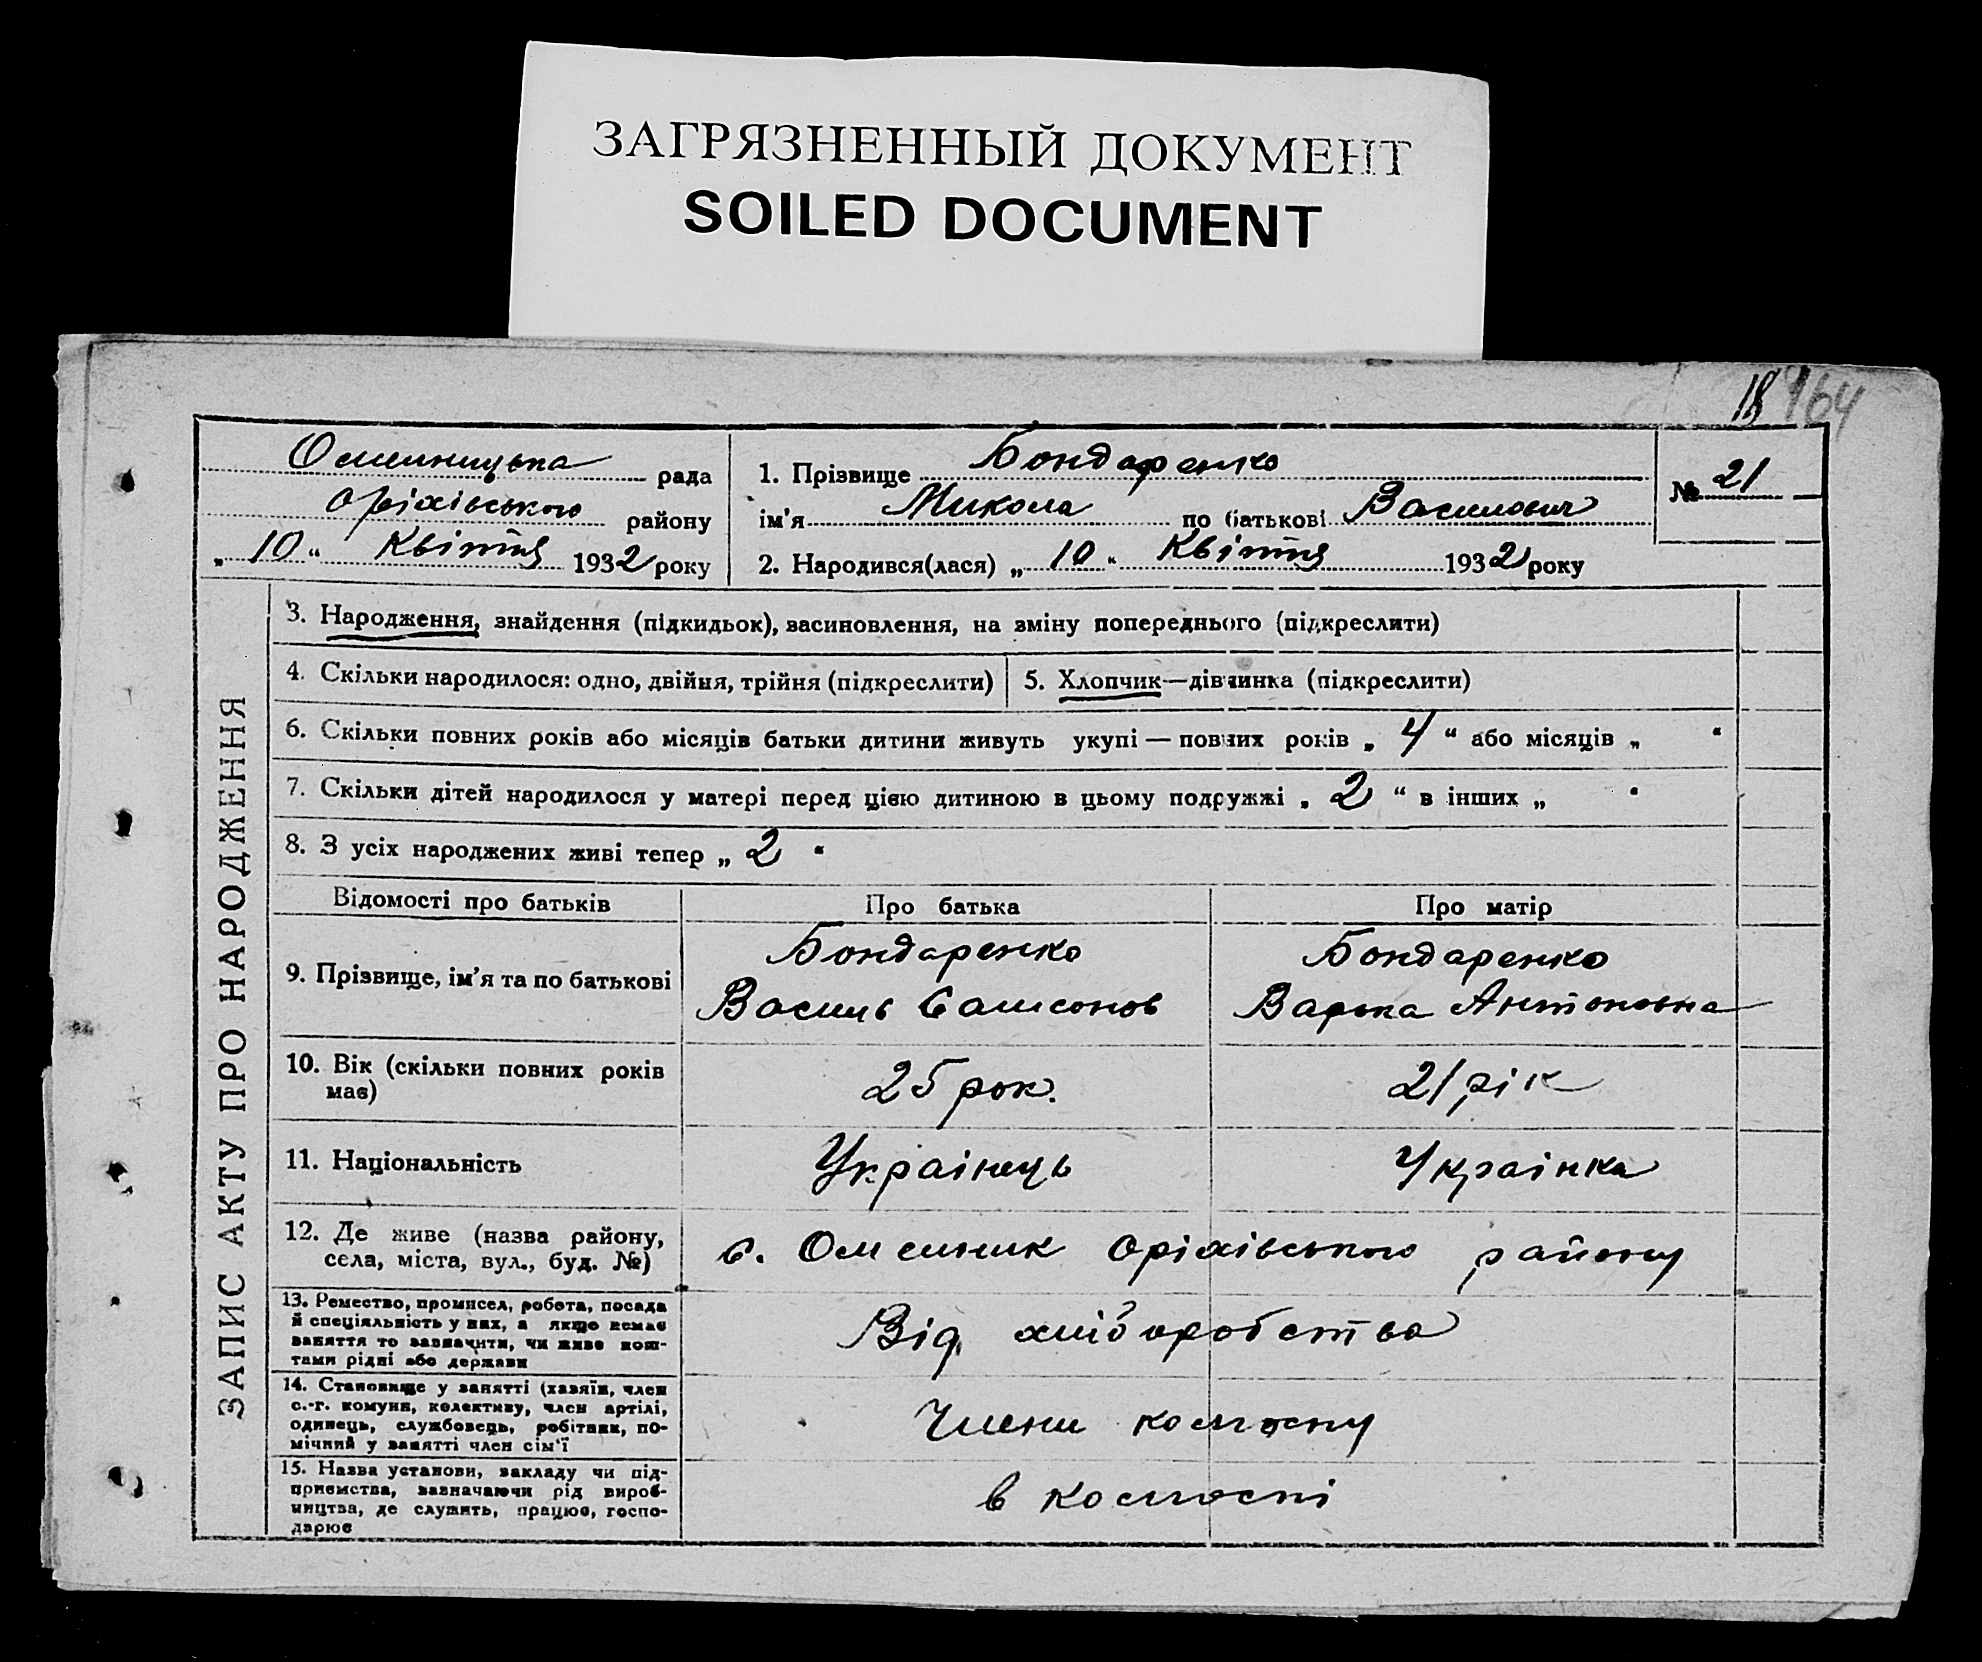 ЗАГРЯЗНЕННЫЙ ДОКУМЕНТ
SOILED DOCUMENT
18 164
Омельницька рада
Оріхівського району
„ 10 “ Квітня 1932 року
1. Прізвище Бондаренко
ім'я Микола по батькові Василович
2. Народився(лася) „ 10 “ Квітня 1932 року
№ 21
ЗАПИС АКТУ ПРО НАРОДЖЕННЯ
3. Народження, знайдення (підкидьок), васиновлення, на зміну попереднього (підкреслити)
4. Скільки народилося: одно, двійня, трійня (підкреслити)
5. Хлопчик—дівчинка (підкреслити)
6. Скільки повних років або місяців батьки дитини живуть укупі — повних років „ 4 “ або місяців „ “
7. Скільки дітей народилося у матері перед цією дитиною в цьому подружжі „ 2 “ в інших „ “
8. З усіх народжених живі тепер „ 2 “
Відомості про батьків
Про батька
Про матір
9. Прізвище, ім'я та по батькові
Бондаренко
Василь Самсонов
Бондаренко
Варька Антоновна
10. Вік (скільки повних років
має)
25 рок.
21 рік
11. Національність
Українець
Українка
12. Де живе (назва району,
села, міста, вул., буд. №)
с. Омельник Оріхівського району
13. Ремество, промисел, робота, посада
й спеціяльність у них, а якщо немає
заняття то зазначити, чи живе кош-
тами рідні або держави
Від хліборобства
14. Становище у занятті (хазяїн, член
с.-г. комуни, колективу, член артілі,
одинець, службовець, робітник, по-
мічний у занятті член сім'ї
Члени колгоспу
15. Назва установи, закладу чи під-
приємства, зазначаючи рід вироб-
ництва, де служить, працює, госпо-
дарює
в колгоспі